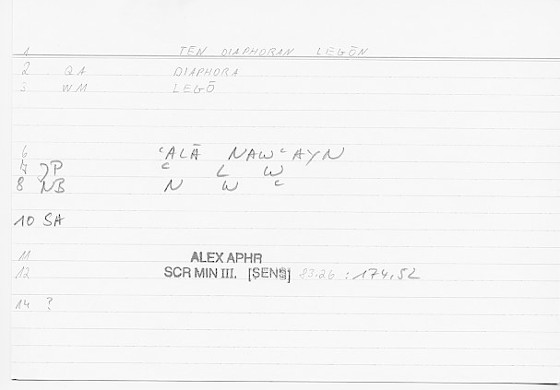 1 TĒN DIAPHORAN LEGŌN
2 QA DIAPHORA
3 WM LEGŌ
6 ʿALĀ NAWʿAYN
7 JP ʿ L W
8 NB N W ʿ
10 SA
11 ALEX APHR
12 SCR MIN III. [SENS] 83.26 : 174,52
14 ?